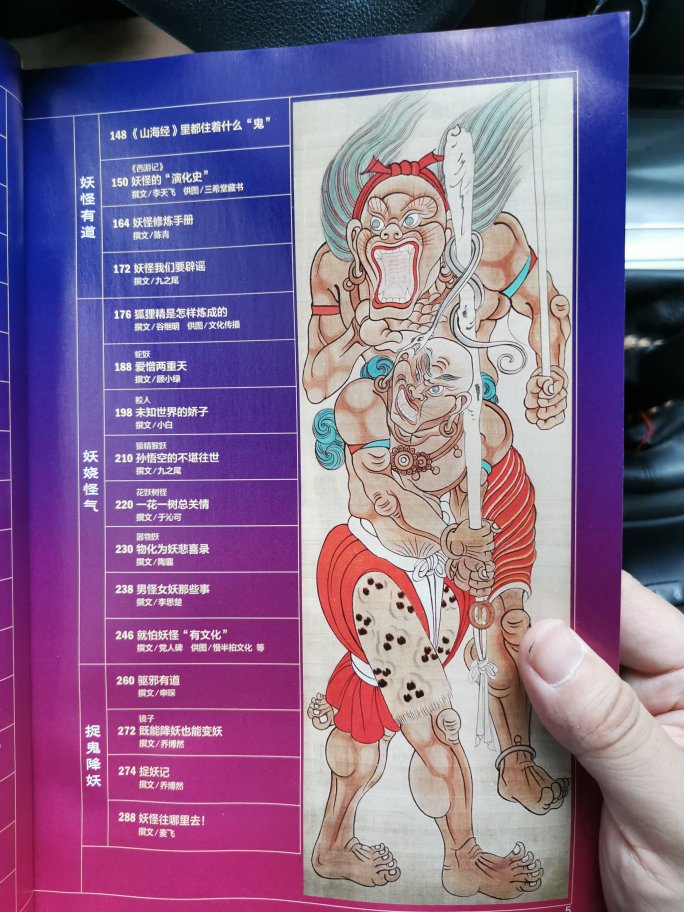 妖怪有道
148《山海经》里都住着什么“鬼”
《西游记》
150 妖怪的“演化史”
撰文/李天飞 供图/三希堂藏书
164 妖怪修炼手册
撰文/陈青
172 妖怪我们要辟谣
撰文/九之尾
妖娆怪气
176 狐狸精是怎样炼成的
撰文/谷继明 供图/文化传播
蛇妖
188 爱憎两重天
撰文/顾小绿
鲛人
198 未知世界的娇子
撰文/小白
猿精猴妖
210 孙悟空的不堪往世
撰文/九之尾
花妖树怪
220 一花一树总关情
撰文/于沁可
器物妖
230 物化为妖悲喜录
撰文/陶襄
238 男怪女妖那些事
撰文/李思楚
246 就怕妖怪“有文化”
撰文/党人碑 供图/慢半拍文化 等
捉鬼降妖
260 驱邪有道
撰文/申琛
镜子
272 既能降妖也能变妖
撰文/乔博然
274 捉妖记
撰文/乔博然
288 妖怪往哪里去！
撰文/麦飞
5